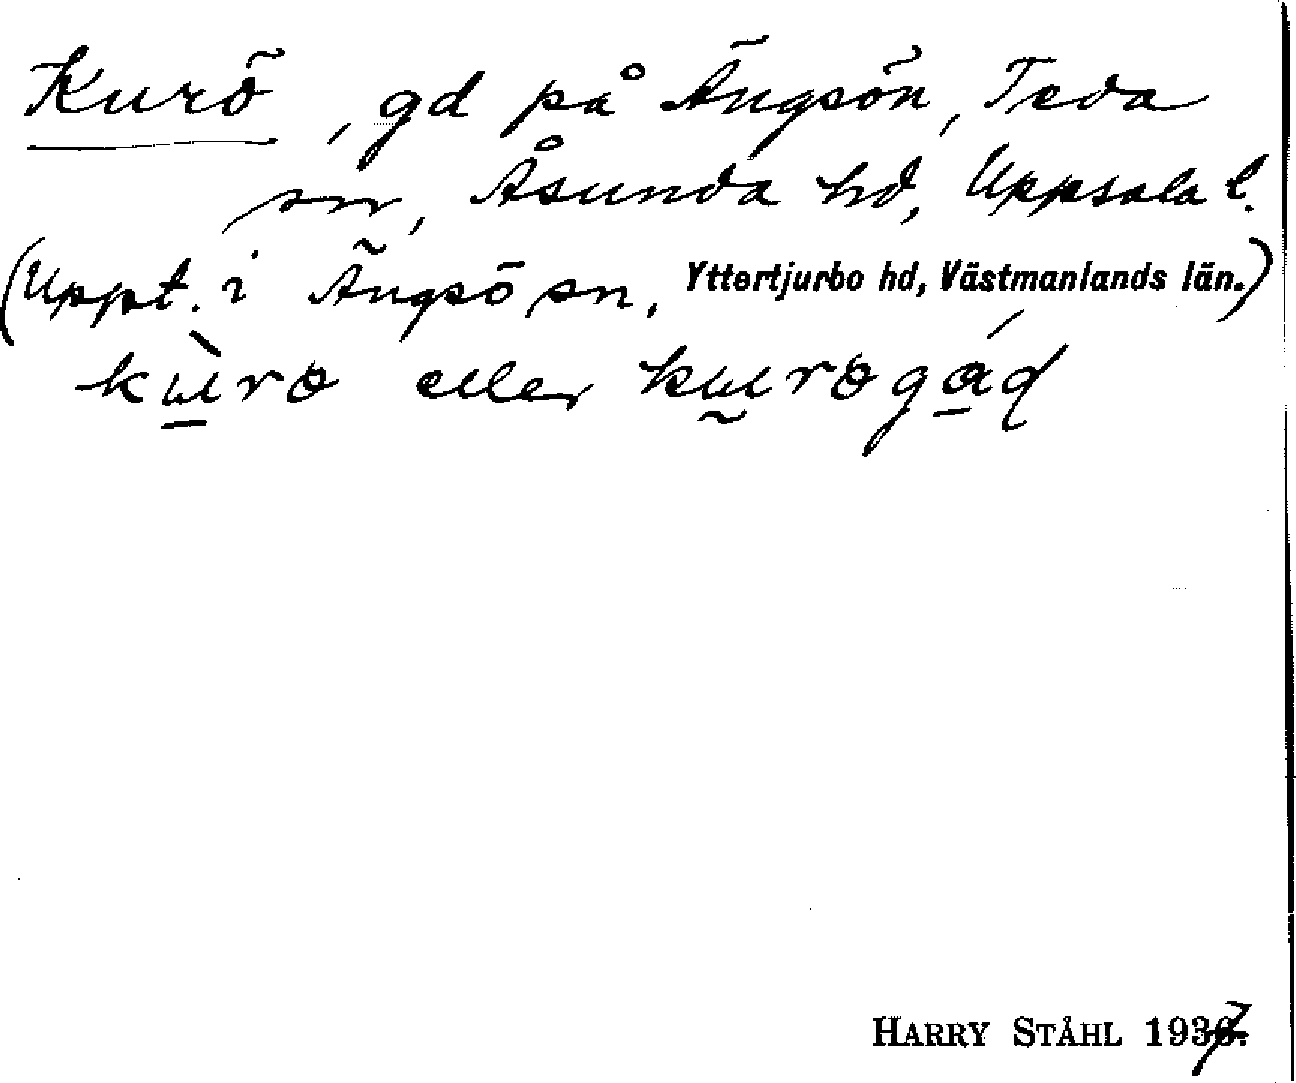 Kurö, gd på Ängsön, Teda
sn, Åsunda hd, Uppsala l.
(Uppt. i Ängsö sn, Yttertjurbo hd, Västmanlands län.)
kùrö eller kurögáɖ
HARRY STÅHL 1937.